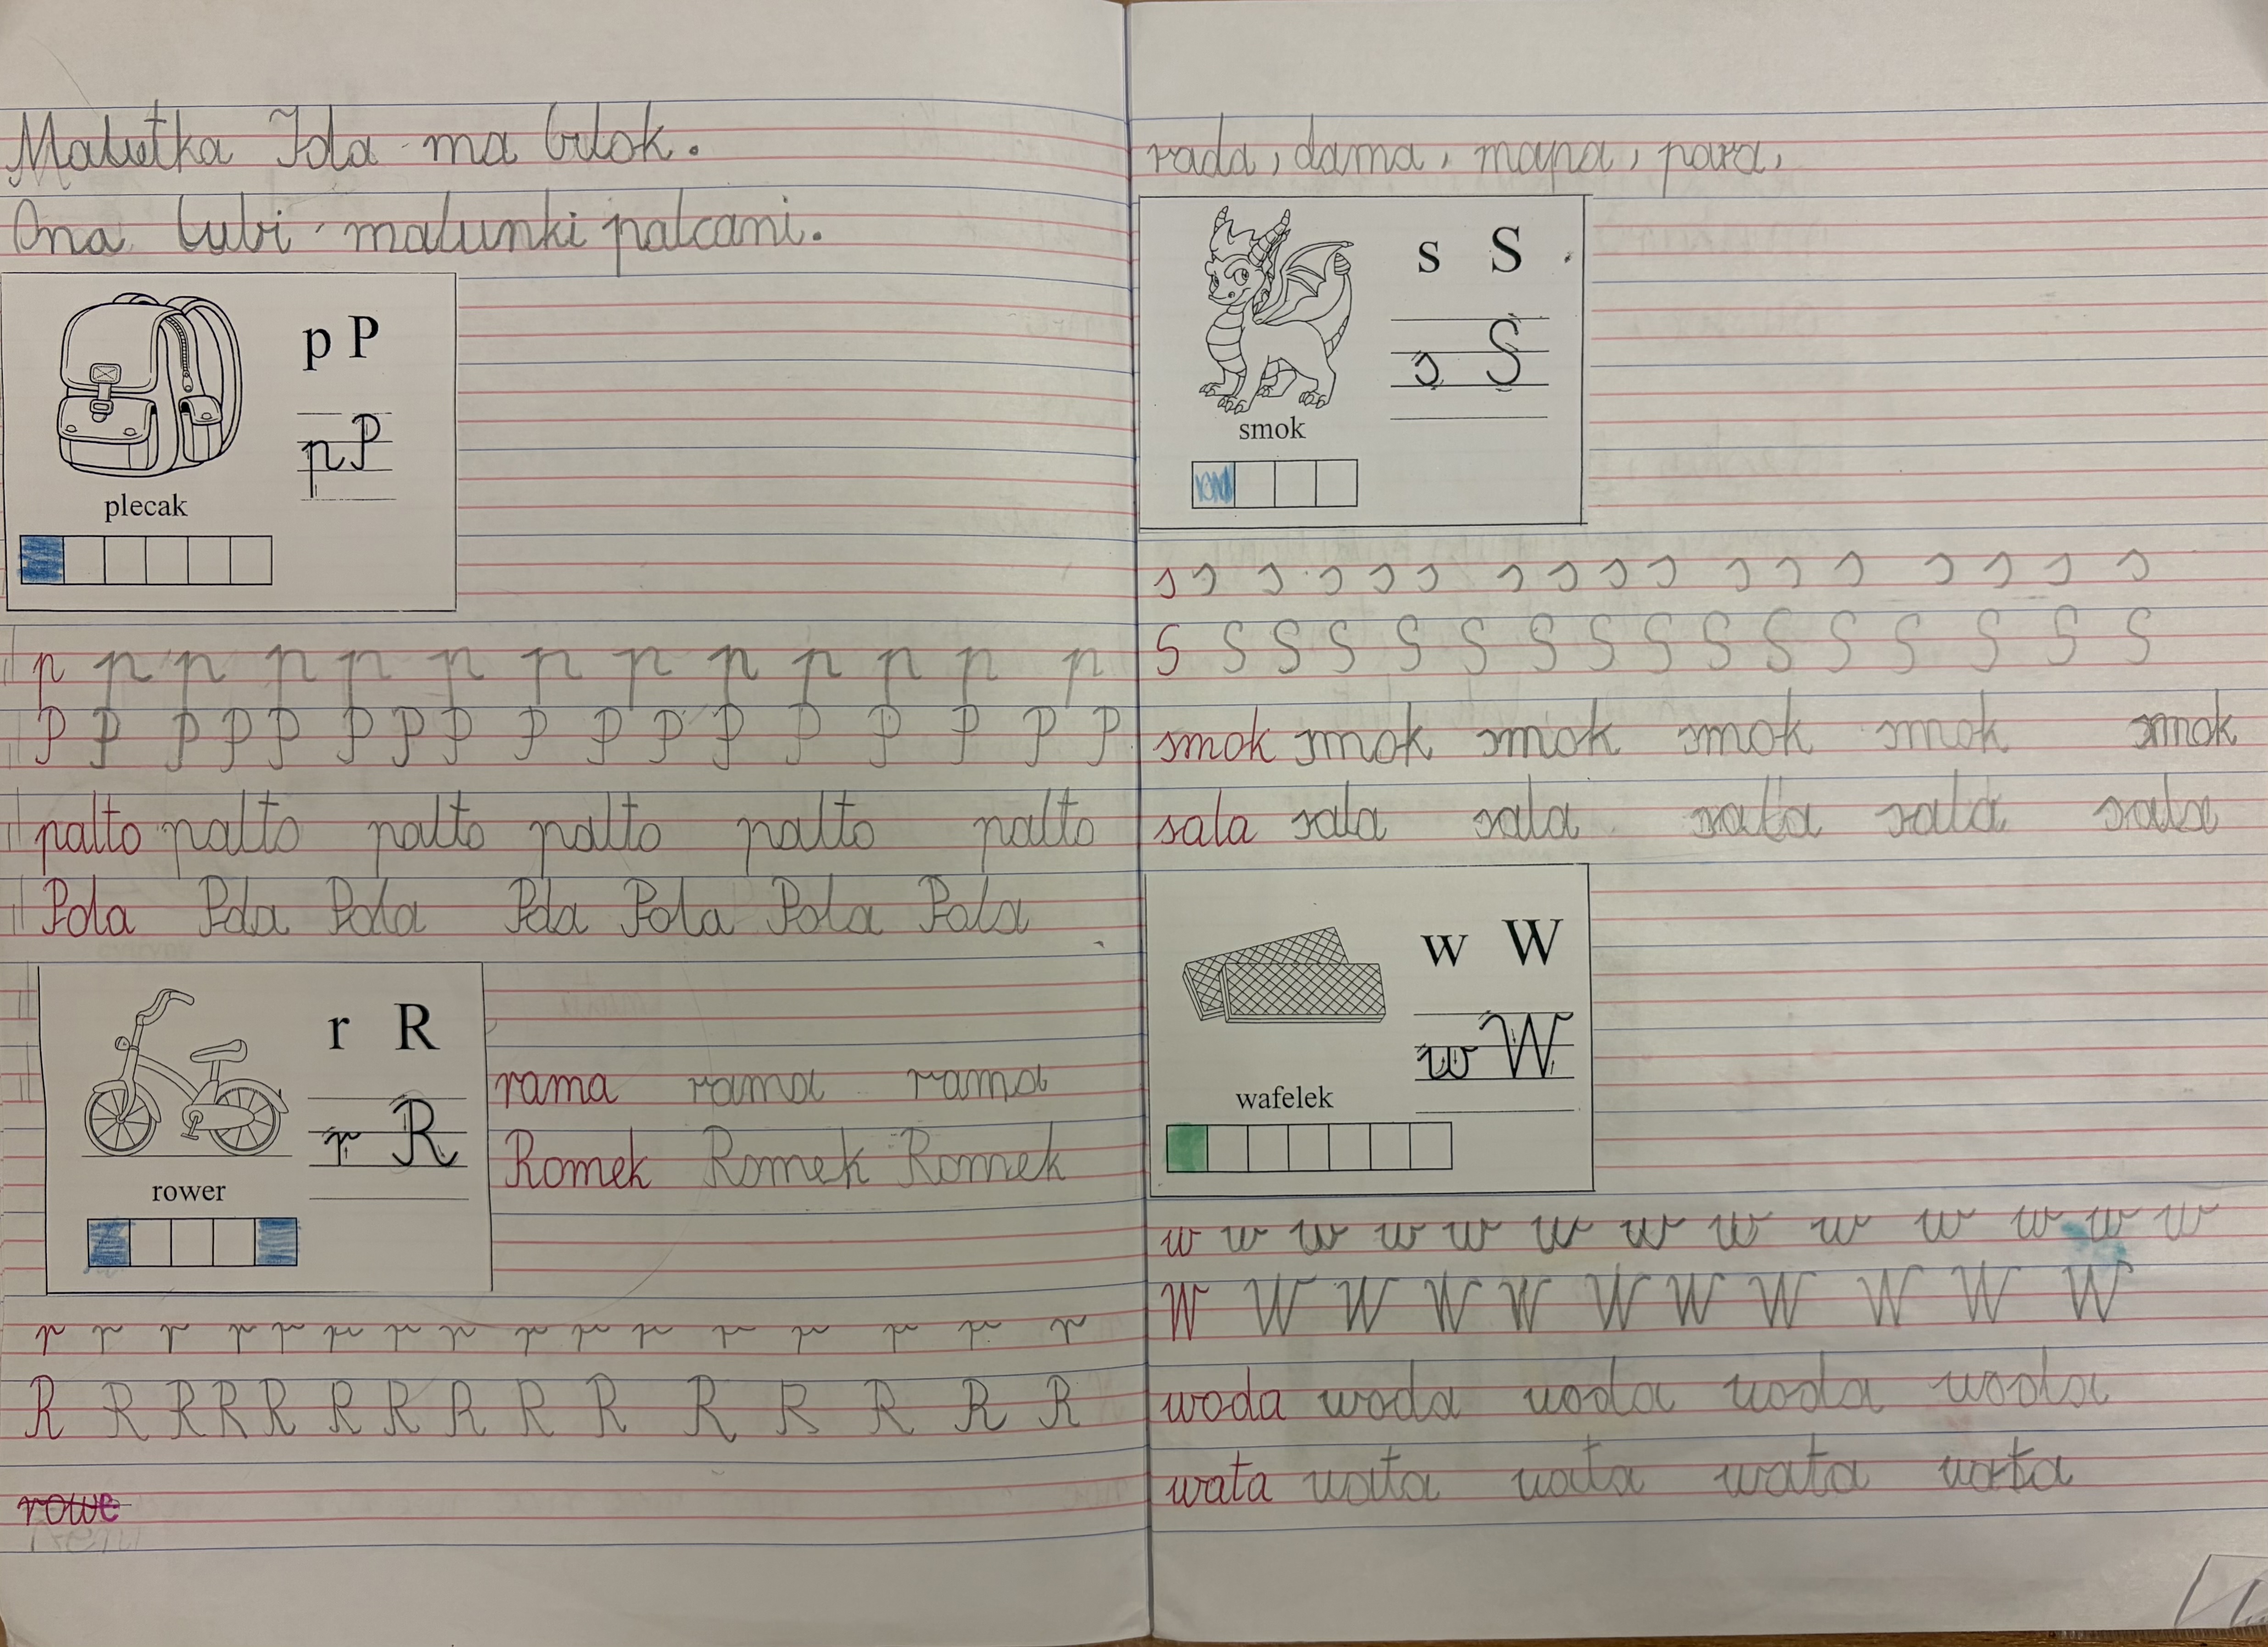 Malutka Ida ma blok.
Ona lubi malunki palcami.
p P
p P
plecak
p p p p p p p p p p p p p
P P P P P P P P P P P P P P P P P
palto palto palto palto palto palto
Pola Pola Pola Pola Pola Pola Pola
r R
r R
rower
rama rama rama
Romek Romek Romek
r r r r r r r r r r r r r r r r
R R R R R R R R R R R R R R R
rowe
rada, dama, mapa, para,
s S
s S
smok
s s s s s s s s s s s s s s s s s
S S S S S S S S S S S S S S S S
smok smok smok smok smok smok
sala sala sala sala sala sala
w W
w W
wafelek
w w w w w w w w w w w w w
W W W W W W W W W W W
woda woda woda woda woda
wata wata wata wata wata